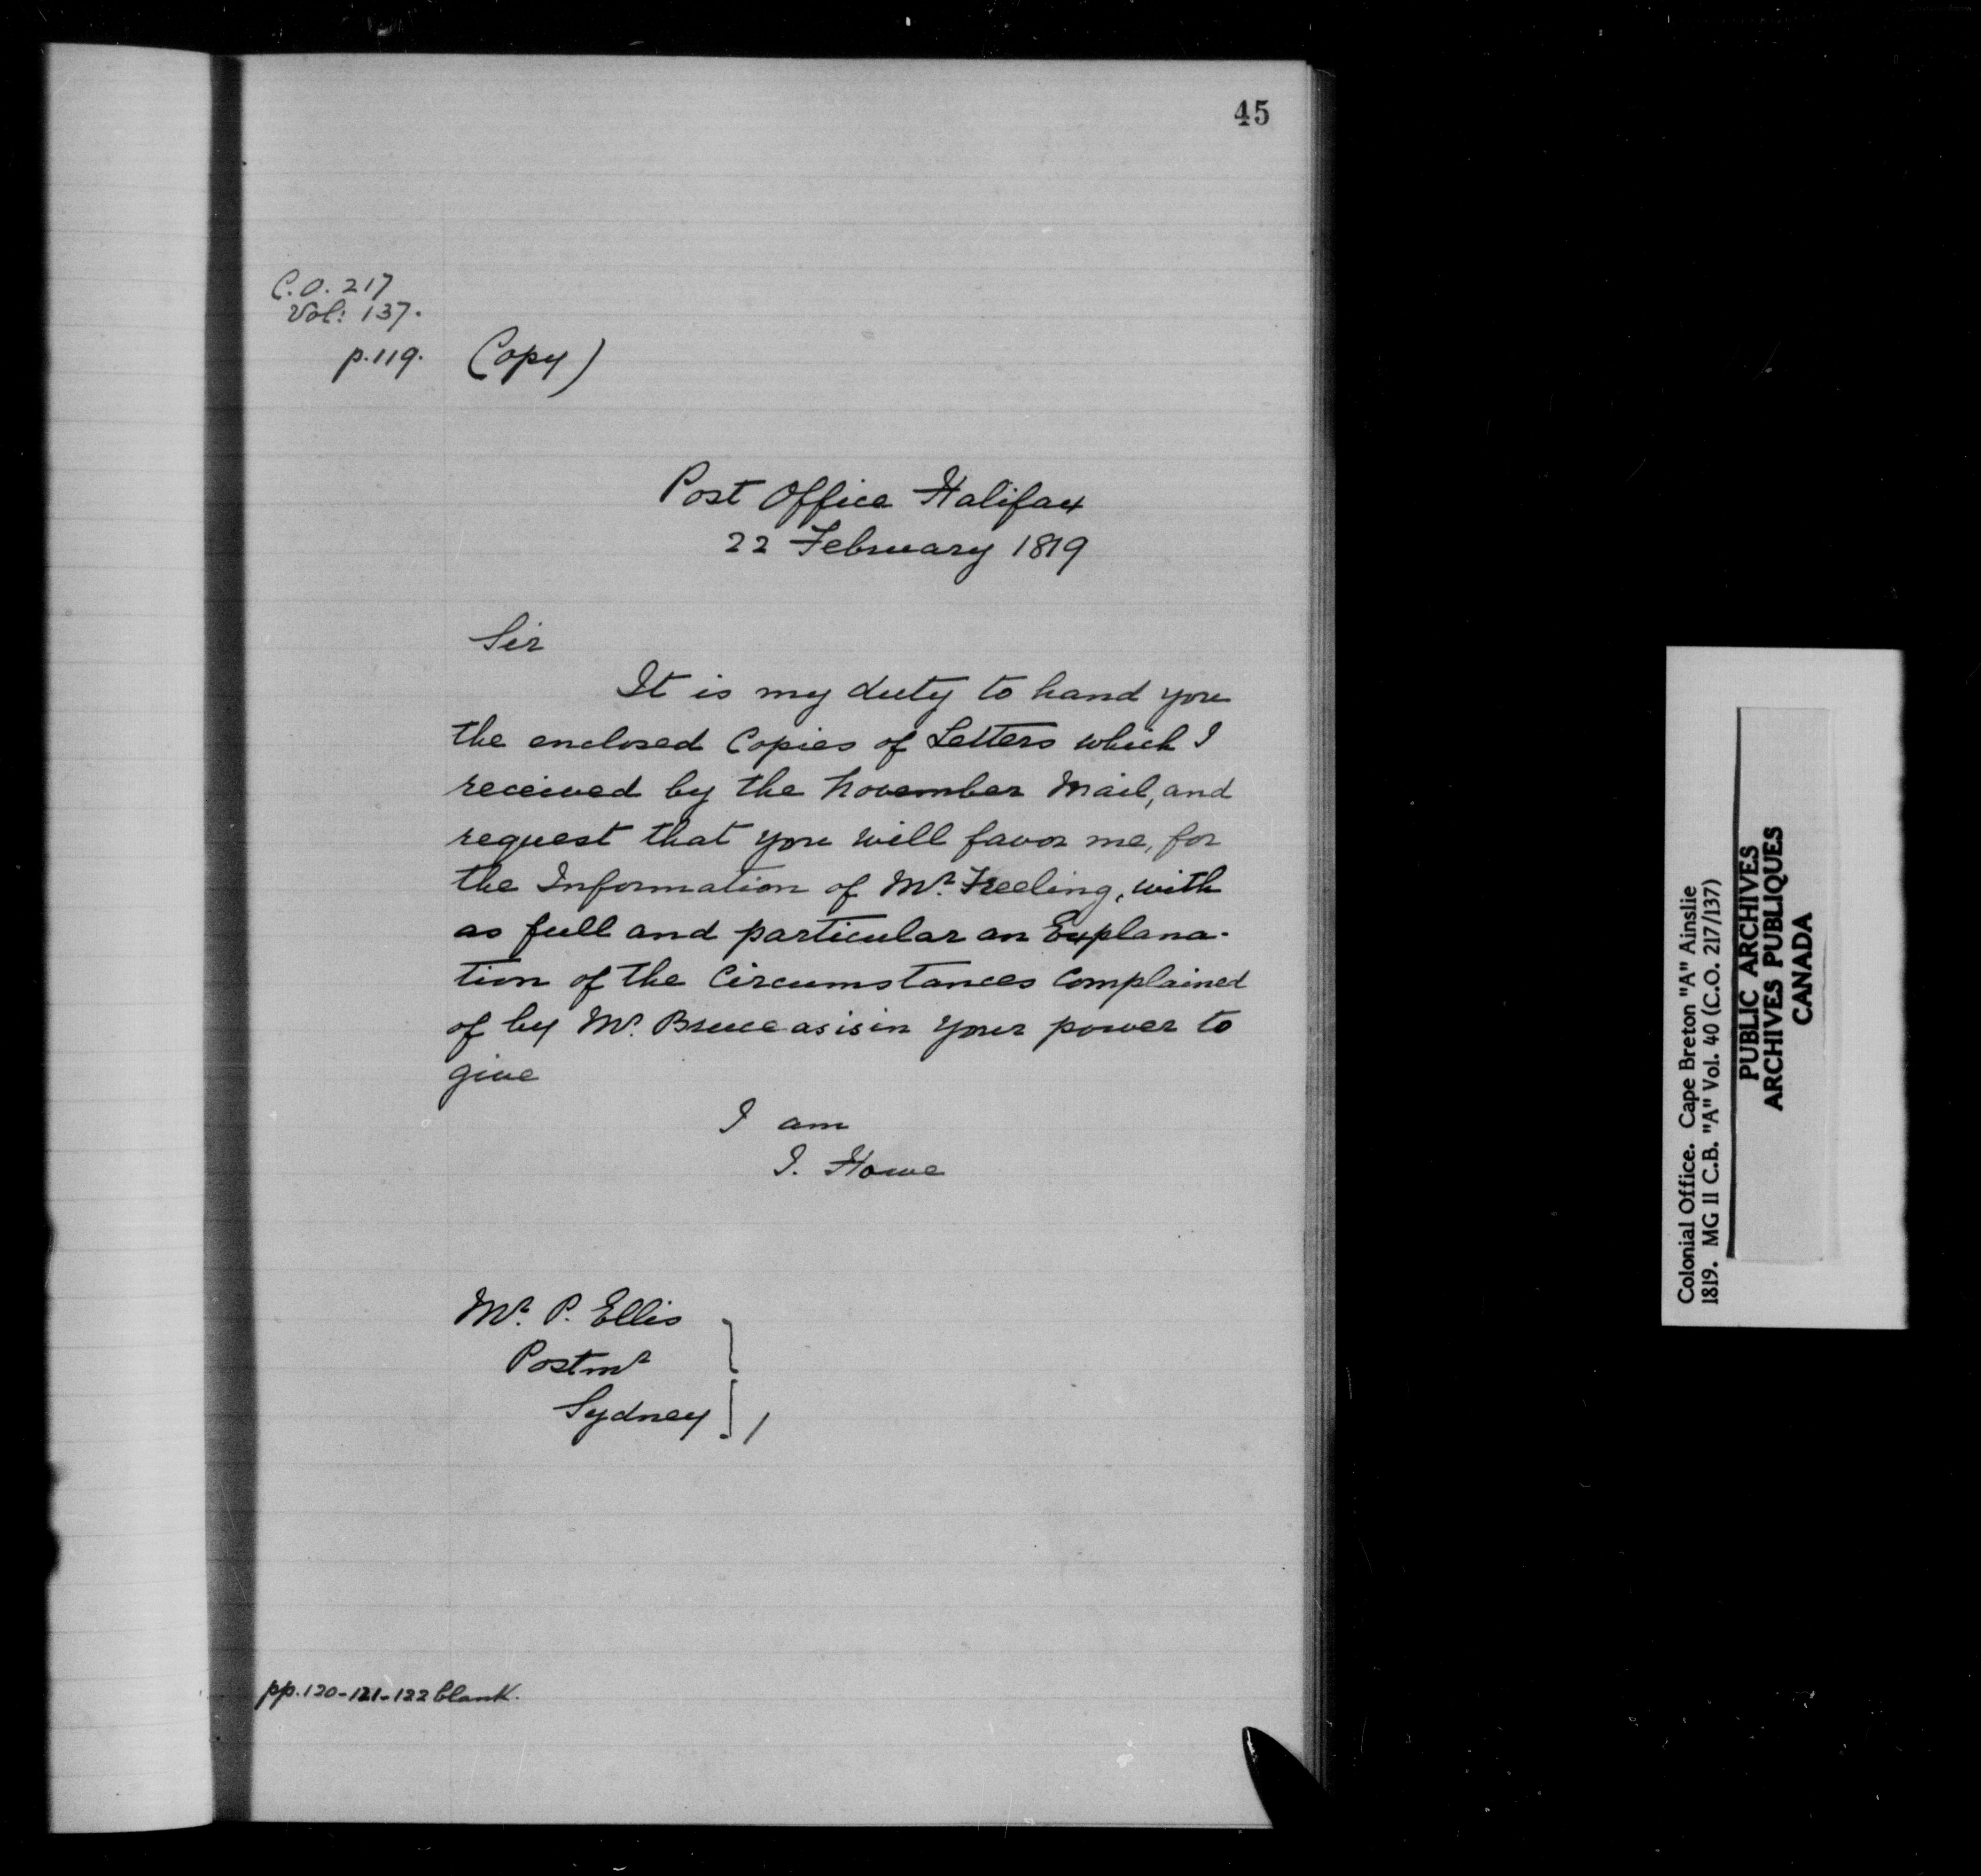 45
C.O. 217
Vol: 137.
p. 119. (Copy)
Post Office Halifax
22 February 1819
Sir
It is my duty to hand you
the enclosed Copies of Letters which I
received by the November Mail, and
request that you will favor me, for
the Information of Mr. Freeling, with
as full and particular an Explana-
tion of the Circumstances Complained
of by Mr. Bruce as is in your power to
give
I am
J. Howe
Mr. P. Ellis
Postmr
Sydney
pp. 120-121-122 blank.
Colonial Office. Cape Breton "A" Ainslie
1819. MG 11 C.B. "A" Vol. 40 (C.O. 217/137)
PUBLIC ARCHIVES
ARCHIVES PUBLIQUES
CANADA